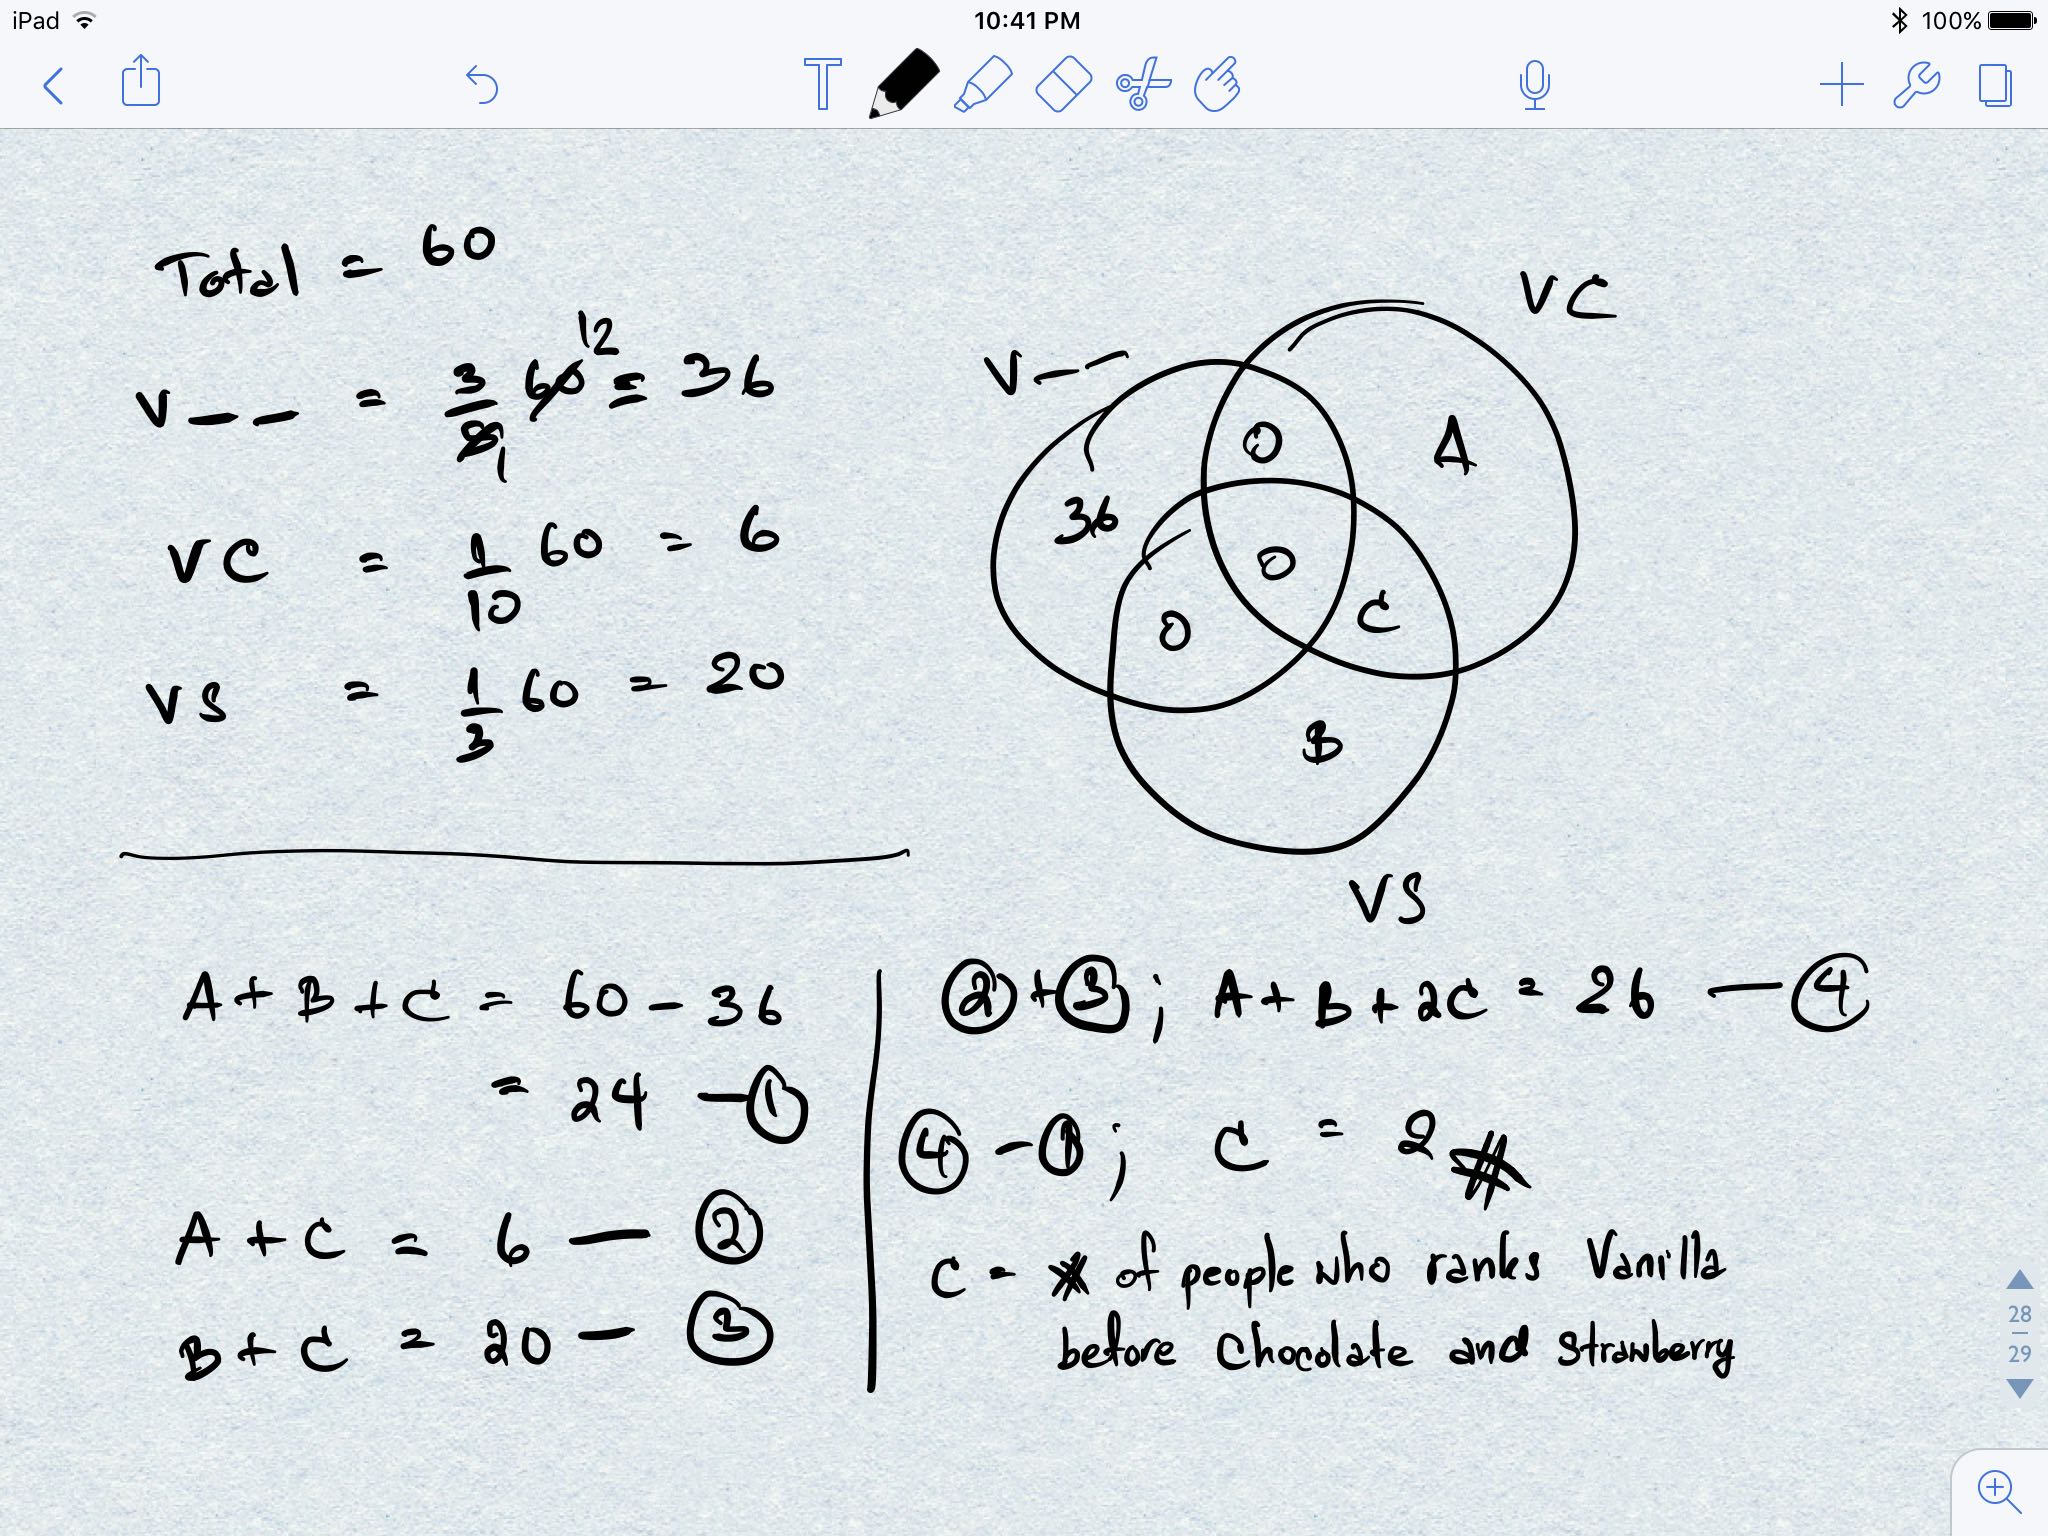 iPad 10:41 PM 100%
Total = 60
V _ _ = 3/5 60 12 1 = 36
VC = 1/10 60 = 6
VS = 1/3 60 = 20
V _ _
VC
O
A
36
O
O
C
B
VS
A + B + C = 60 - 36
= 24 — ①
A + C = 6 — ②
B + C = 20 — ③
② + ③ ; A + B + 2C = 26 — ④
④ - ① ; C = 2 #
C = # of people who ranks Vanilla
before Chocolate and Strawberry
28
29